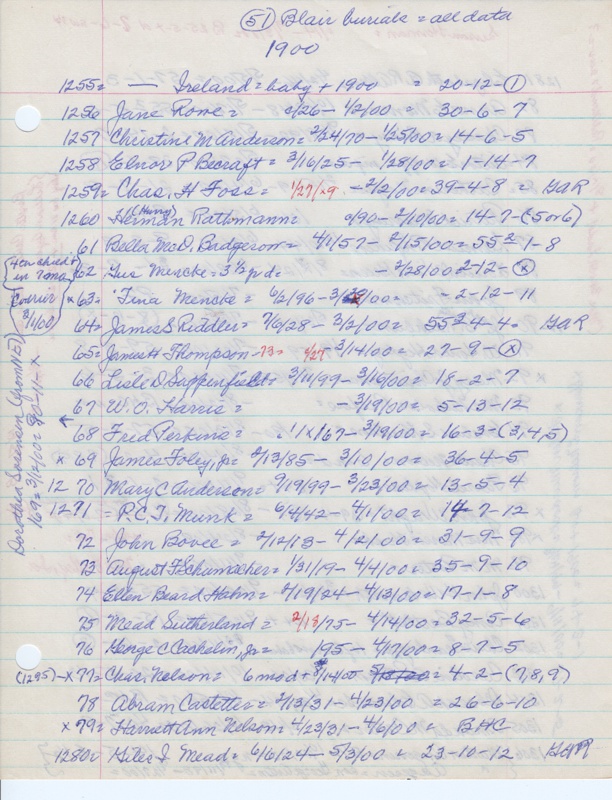 (51) Blair burials = all data
1900
1255= — Ireland = baby + 1900 = 20-12-(1)
1256 Jane Rowe = c/26 - 1/2/00 = 30-6-7
1257 Christine M Anderson = 2/24/70 - 1/25/00 = 14-6-5
1258 Elnor P Becraft = 3/16/25 - 1/28/00 = 1-14-7
1259= Chas. H Foss = 1/27/29 - 2/2/00 = 39-4-8 = GAR
(Harry)
1260 Herman Rathmann = c/90 - 2/10/00 = 14-7-(5 or 6)
61 Bella McD. Badgerow = 4/1/57 - 2/15/00 = 55 2 1-8
4th child in 7 mo Courier 3/1/00
62 Gus Mencke = 3 1/2 yr d. - 2/28/00 2-12-(x)
x 63 = Tina Mencke = 6/2/96 - 3/ /00 = -2-12-11
64= James S Riddler = 7/6/28 - 3/2/00 = 55 2 4-4= GAR
65= James H Thompson - 73 = c/27 - 3/14/00 = 27-9-(x)
66 Lisle D Sappenfield = 3/11/99 - 3/16/00 = 18-2-7
67 W. O. Harris = - 3/19/00 = 5-13-12
68 Fred Perkins = 11x/67 - 3/19/00 = 16-3-(3,4,5)
x 69 James Foley, Jr = 2/13/85 - 3/10/00 = 36-4-5
1270 Mary C Anderson = 9/19/99 - 3/23/00 = 13-5-4
1271 = P. C. T. Munk = 6/4/42 - 4/1/00 = 14 7-12
72 John Bovee = 2/12/13 - 4/2/00 = 31-9-9
73 August F Schumacher = 1/31/19 - 4/4/00 = 35-9-10
74 Ellen Beard Hahn = 2/19/24 - 4/13/00 = 17-1-8
75 Mead Sutherland = 2/13/75 - 4/14/00 = 32-5-6
76 George C Cacholin, Jr = 195 - 4/17/00 = 8-7-5
(1295) - x 77= Chas. Nelson = 6 mo d + /14/00 = 4-2-(7,8,9)
78 Abram Castetter = 2/13/31 - 4/23/00 = 26-6-10
x 79= Harriett Ann Nelson = 4/23/31 - 4/6/00 = BHC
1280= Giles I. Mead = 6/6/24 - 5/3/00 = 23-10-12 GAR
Dorothea Sorensen
169= 3/12/00 = 20-11-x